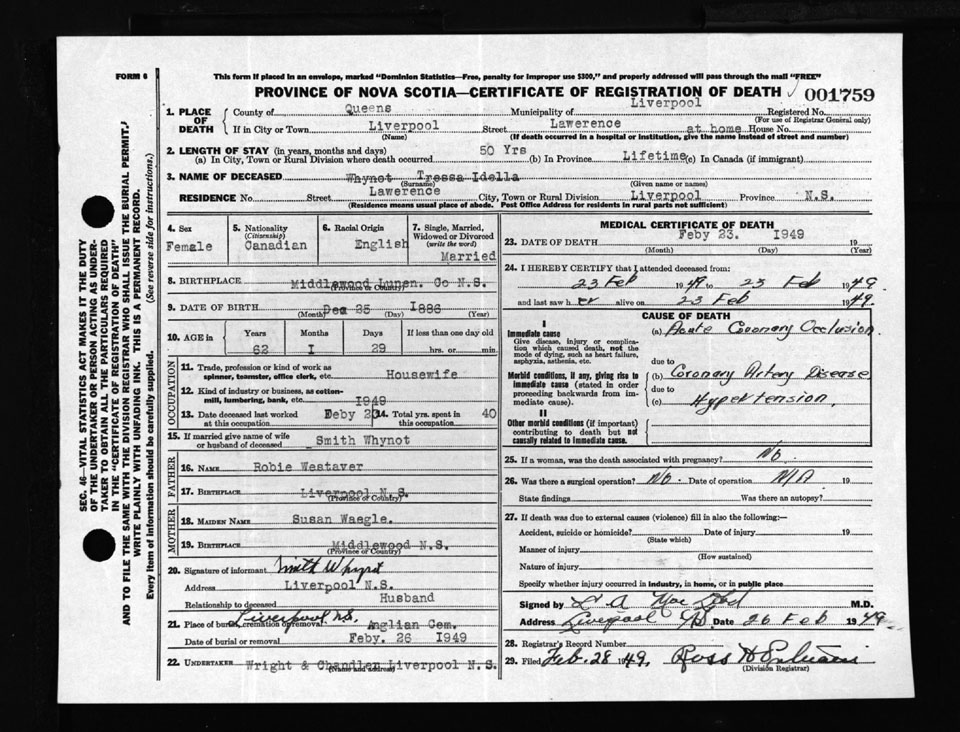 FORM 6
This form if placed in an envelope, marked "Dominion Statistics—Free, penalty for improper use $300," and properly addressed will pass through the mail "FREE"
PROVINCE OF NOVA SCOTIA—CERTIFICATE OF REGISTRATION OF DEATH
001759
1. PLACE OF DEATH
County of Queens Municipality of Liverpool Registered No.
(For use of Registrar General only)
If in City or Town Liverpool Street Lawerence at home House No.
(Name) (If death occurred in a hospital or institution, give the name instead of street and number)
2. LENGTH OF STAY (in years, months and days)
(a) In City, Town or Rural Division where death occurred 50 Yrs (b) In Province Lifetime (c) In Canada (if immigrant)
3. NAME OF DECEASED Whynot Tressa Idella
(Surname) (Given name or names)
RESIDENCE No. Street Lawerence City, Town or Rural Division Liverpool Province N.S.
(Residence means usual place of abode. Post Office Address for residents in rural parts not sufficient)
4. Sex Female
5. Nationality (Citizenship) Canadian
6. Racial Origin English
7. Single, Married, Widowed or Divorced (write the word) Married
8. BIRTHPLACE Middlewood Lunen. Co N.S.
(Province or Country)
9. DATE OF BIRTH Dea 25 I886
(Month) (Day) (Year)
10. AGE in Years Months Days If less than one day old
62 I 29 hrs. or min.
OCCUPATION
11. Trade, profession or kind of work as spinner, teamster, office clerk, etc. Housewife
12. Kind of industry or business, as cotton-mill, lumbering, bank, etc.
13. Date deceased last worked at this occupation Feby 23 I949
14. Total yrs. spent in this occupation 40
15. If married give name of wife or husband of deceased Smith Whynot
FATHER
16. NAME Robie Westaver
17. BIRTHPLACE Liverpool N.S.
(Province or Country)
MOTHER
18. MAIDEN NAME Susan Waegle.
19. BIRTHPLACE Middlewood N.S.
(Province or Country)
20. Signature of informant Smith Whynot
Address Liverpool N.S.
Relationship to deceased Husband
21. Place of burial, cremation or removal Liverpool N.S. Anglian Cem.
Date of burial or removal Feby. 26 I949
22. UNDERTAKER Wright & Chandler Liverpool N.S.
(Name and address)
MEDICAL CERTIFICATE OF DEATH
23. DATE OF DEATH Feby 23. I949 19
(Month) (Day) (Year)
24. I HEREBY CERTIFY that I attended deceased from:
23 Feb 1949 to 23 Feb 1949
and last saw her alive on 23 Feb 1949.
CAUSE OF DEATH
I
Immediate cause
Give disease, injury or complication which caused death, not the mode of dying, such as heart failure, asphyxia, asthenia, etc.
(a) Acute Coronary Occlusion.
due to
Morbid conditions, if any, giving rise to immediate cause (stated in order proceeding backwards from immediate cause).
(b) Coronary Artery Disease
due to
(c) Hypertension.
II
Other morbid conditions (if important) contributing to death but not causally related to immediate cause.
25. If a woman, was the death associated with pregnancy? No.
26. Was there a surgical operation? No. Date of operation N/A 19
State findings Was there an autopsy?
27. If death was due to external causes (violence) fill in also the following:—
Accident, suicide or homicide? Date of injury 19
(State which)
Manner of injury
(How sustained)
Nature of injury
Specify whether injury occurred in industry, in home, or in public place
Signed by M.D.
Address Liverpool Date 26 Feb 1949
28. Registrar's Record Number
29. Filed Feb. 28 1949. Ross
(Division Registrar)
SEC. 46—VITAL STATISTICS ACT MAKES IT THE DUTY
OF THE UNDERTAKER OR PERSON ACTING AS UNDERTAKER
TO OBTAIN ALL THE PARTICULARS REQUIRED
IN THE "CERTIFICATE OF REGISTRATION OF DEATH"
AND TO FILE THE SAME WITH THE DIVISION REGISTRAR WHO SHALL ISSUE THE BURIAL PERMIT.
WRITE PLAINLY WITH UNFADING INK. THIS IS A PERMANENT RECORD.
Every item of information should be carefully supplied. (See reverse side for instructions.)